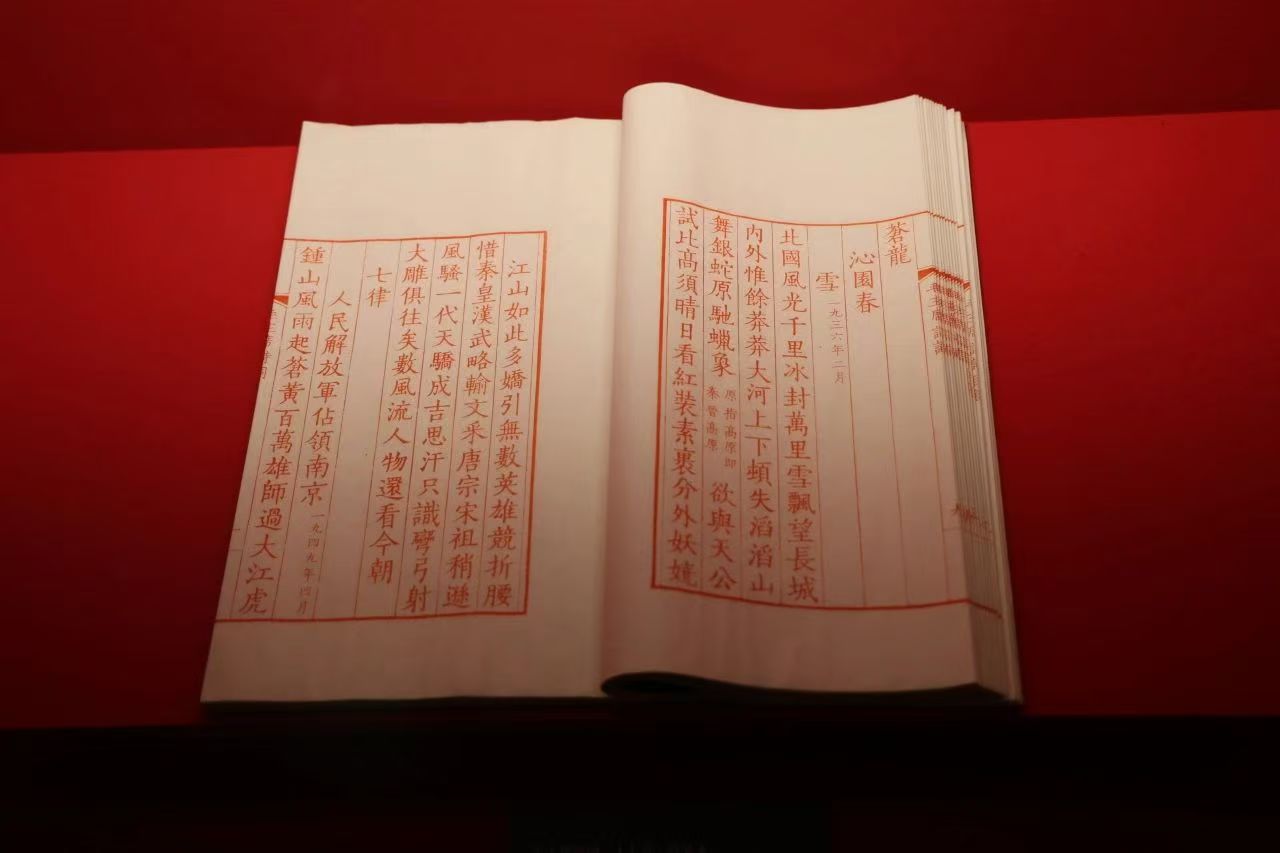 蒼龍
沁園春
雪 一九三六年二月
北國風光千里冰封萬里雪飄望長城
内外惟餘莽莽大河上下頓失滔滔山
舞銀蛇原馳蠟象 原指高原即秦晉高原 欲與天公
試比高須晴日看紅裝素裹分外妖嬈
江山如此多嬌引無數英雄競折腰
惜秦皇漢武略輸文采唐宗宋祖稍遜
風騷一代天驕成吉思汗只識彎弓射
大雕俱往矣數風流人物還看今朝
七律
人民解放軍佔領南京 一九四九年四月
鍾山風雨起蒼黃百萬雄師過大江虎